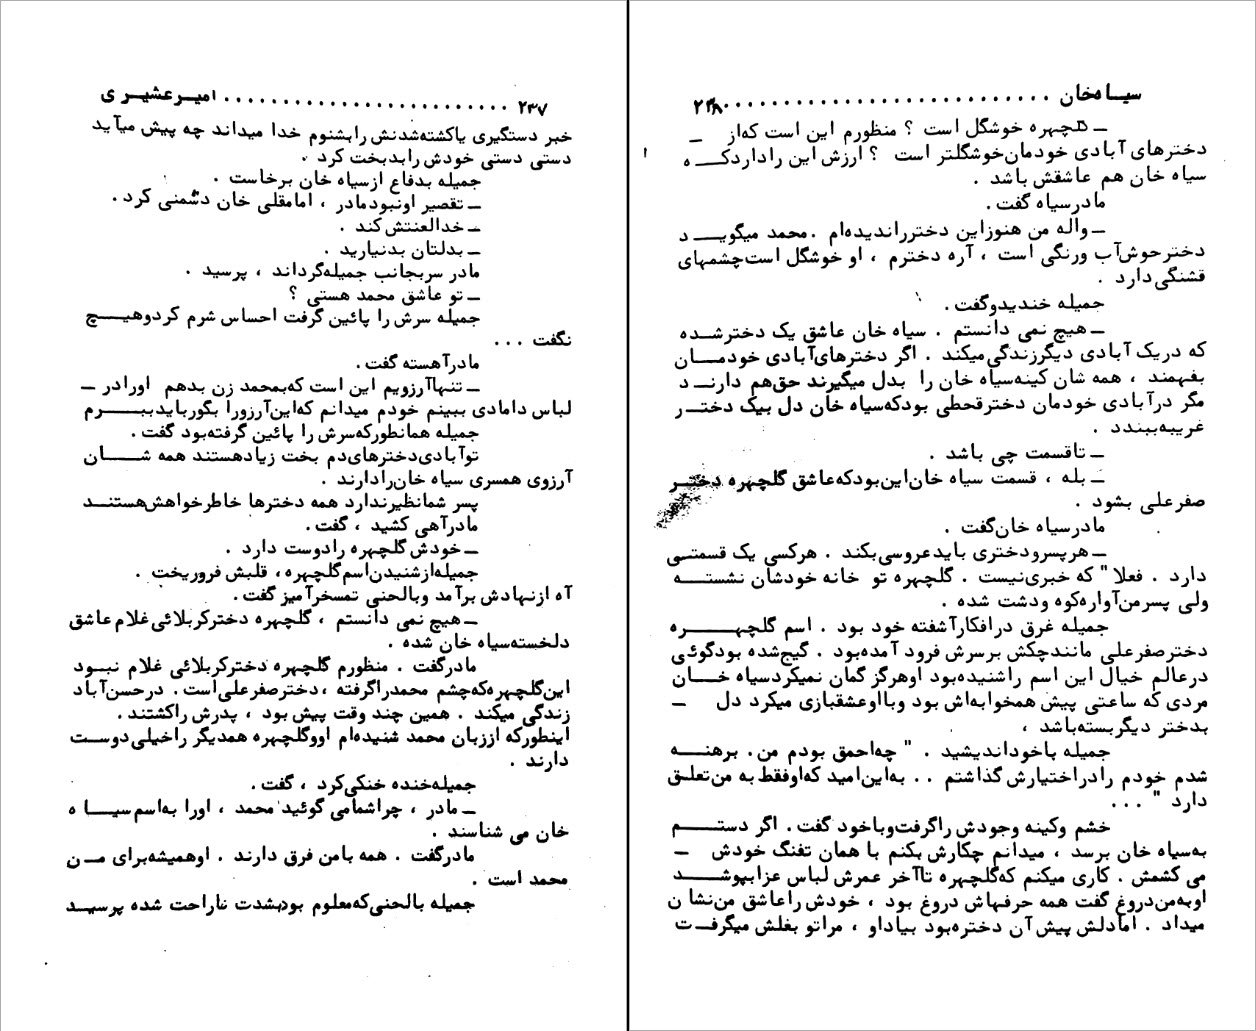 ۲۳۷ ........................ امیرعشیری
خبر دستگیری یاکشته‌شدنش رابشنوم خدا میداند چه پیش میآید
دستی دستی خودش رابدبخت کرد .
جمیله بدفاع ازسیاه خان برخاست .
ــ تقصیر اونبودمادر ، امامقلی خان دشمنی کرد.
ــ خدالعنتش کند .
ــ بدلتان بدنیارید .
مادر سربجانب جمیله‌گرداند ، پرسید .
ــ تو عاشق محمد هستی ؟
جمیله سرش را پائین گرفت احساس شرم کردوهیـــچ
نگفت ...
مادرآهسته گفت.
ــ تنهاآرزویم این است که‌بمحمد زن بدهم اورادر ــ
لباس دامادی ببینم خودم میدانم که‌این‌آرزورا بگوربایدببـــرم
جمیله همانطورکه‌سرش را پائین گرفته‌بود گفت.
توآبادی‌دخترهای‌دم بخت زیادهستند همه شـــان
آرزوی همسری سیاه خان‌رادارند .
پسر شمانظیرندارد همه دخترها خاطرخواهش‌هستنـــد
مادرآهی کشید ، گفت.
ــ خودش گلچهره رادوست دارد .
جمیله‌ازشنیدن‌اسم‌گلچهره، قلبش فروریخت .
آه ازنهادش برآمد وبالحنی تمسخرآمیز گفت.
ــ هیچ نمی دانستم ، گلچهره دخترکربلائی غلام عاشق
دلخسته‌سیاه خان شده .
مادرگفت . منظورم گلچهره دخترکربلائی غلام نبـــود
این‌گلچهره‌که‌چشم محمدراگرفته ،دخترصفرعلی‌است. درحسن‌آباد
زندگی میکند . همین چند وقت پیش بود ، پدرش راکشتند.
اینطورکه اززبان محمد شنیده‌ام اووگلچهره همدیگر راخیلی‌دوســت
دارند .
جمیله‌خنده خنکی‌کرد ، گفت.
ــ مادر ، چراشمامی گوئید محمد ، اورا به‌اسم‌سیـــا ه
خان می شناسند .
مادرگفت . همه بامن فرق دارند . اوهمیشه‌برای مــن
محمد است .
جمیله بالحنی‌که‌معلوم بودبشدت ناراحت شده پرسیــد
سیــاه‌خان ........................... ۲۳۸
ــ گلچهره خوشگل است ؟ منظورم این است که‌از ــ
دخترهای آبادی خودمان‌خوشگلتر است ؟ ارزش این راداردکـــه
سیاه خان هم عاشقش باشد .
مادرسیاه گفت.
ــ واله من هنوزاین دخترراندیده‌ام . محمد میگویـــد
دخترخوش‌آب ورنگی است ، آره دخترم ، او خوشگل است‌چشمهای
قشنگی‌دارد .
جمیله خندیدوگفت.
ــ هیچ نمی دانستم . سیاه خان عاشق یک دخترشــده
که دریک آبادی دیگرزندگی‌میکند . اگر دخترهای‌آبادی خودمــان
بفهمند ، همه شان کینه‌سیاه خان را بدل میگیرند حق‌هم دارنــد
مگر درآبادی خودمان دخترقحطی بودکه‌سیاه خان دل بیک دختــر
غریبه‌ببندد .
ــ تاقسمت چی باشد .
ــ بله ، قسمت سیاه خان‌این‌بودکه‌عاشق گلچهره دختـر
صفرعلی بشود .
مادرسیاه خان‌گفت .
ــ هرپسرودختری بایدعروسی‌بکند . هرکسی یک قسمتــی
دارد . فعلا" که خبری‌نیست . گلچهره تو خانه خودشان نشستــه
ولی پسرمن‌آواره‌کوه ودشت شده .
جمیله غرق درافکارآشفته خود بود . اسم گلچهـــــره
دخترصفرعلی مانندچکش برسرش فرود آمده‌بود . گیج‌شده بودگوئی
درعالم خیال این اسم راشنیده‌بود اوهرگز گمان نمیکردسیاه خــان
مردی که ساعتی پیش همخوابه‌اش بود وبااوعشقبازی میکرد دل ــ
بدختر دیگربسته‌باشد ،
جمیله باخوداندیشید . " چه‌احمق بودم من. برهنـــه
شدم خودم رادراختیارش گذاشتم .. به‌این‌امید که‌اوفقط به من‌تعلـق
دارد " ...
خشم وکینه وجودش راگرفت‌وباخود گفت. اگر دستـــم
به‌سیاه خان برسد ، میدانم چکارش بکنم با همان تفنگ خودش ــ
می کشمش . کاری میکنم که‌گلچهره تاآخر عمرش لباس عزابپوشـــد
اوبه‌من‌دروغ گفت همه حرفهاش دروغ بود ، خودش راعاشق من‌نشا ن
میداد . امادلش پیش آن دختره‌بود بیاداو ، مراتو بغلش میگرفــت